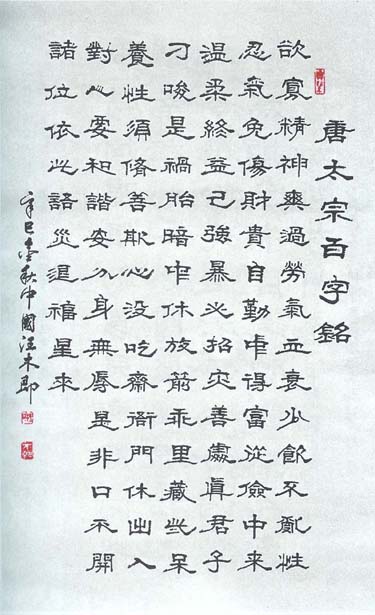 唐太宗百字銘
欲寡精神爽過勞氣血衰少飲不亂性
忍氣免傷財貴自勤中得富從儉中來
温柔終益己強暴必招灾善處真君子
刁唆是禍胎暗中休放箭乖里藏些呆
養性須脩善欺心没吃齋衙門休出入
對要和諧安分身無辱是非口不開
諸位依此語災退福星來
辛巳金秋中國汪木